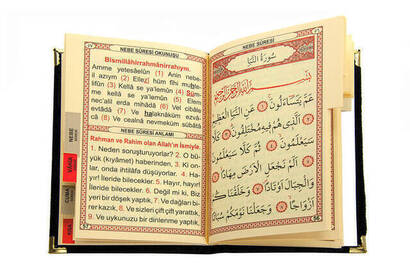 NEBE SÛRESİ OKUNUŞU
Bismillâhirrahmânirrahıym.
Amme yetesâelûn (1) Anin nebe-
il azıym (2) Ellezî hüm fîhi muhte-
lifûn (3) Kellâ se ya'lemûn (4) Süm-
me kellâ se ya'lemûn (5) Elem
nec'alil erda mihâdâ (6) Vel cibâle
evtâdâ (7) Ve halaknâküm ezvâ-
câ (8) Ve cealnâ nevmeküm sübâtâ
NEBE SÛRESİ ANLAMI
Rahman ve Rahim olan Allah'ın İsmiyle.
1. Neden soruşturuyorlar? 2. O bü-
yük (kıyâmet) haberinden, 3. Ki on-
lar, onda ihtilâfa düşüyorlar. 4. Ha-
yır! İleride bilecekler. 5. Hayır, hayır!
İleride bilecekler. 6. Değil mi ki, Biz
yeri bir döşek yaptık. 7. Ve dağları bi-
rer kazık, 8. Ve sizleri çift çift yarattık,
9. Ve uykunuzu bir dinlenme yaptık.
NEBE
CUMA
NEBE SÛRESİ
سُورَةُ النَّبَأِ
بِسْمِ اللهِ الرَّحْمٰنِ الرَّحِيمِ
عَمَّ يَتَسَاءَلُونَ ﴿١﴾ عَنِ النَّبَإِ الْعَظِيمِ
﴿٢﴾ اَلَّذِى هُمْ فِيهِ مُخْتَلِفُونَ ﴿٣﴾
كَلَّا سَيَعْلَمُونَ ﴿٤﴾ ثُمَّ كَلَّا سَيَعْلَمُونَ
﴿٥﴾ اَلَمْ نَجْعَلِ الْاَرْضَ مِهَادًا ﴿٦﴾
وَالْجِبَالَ اَوْتَادًا ﴿٧﴾ وَخَلَقْنَاكُمْ
اَزْوَاجًا ﴿٨﴾ وَجَعَلْنَا نَوْمَكُمْ سُبَاتًا